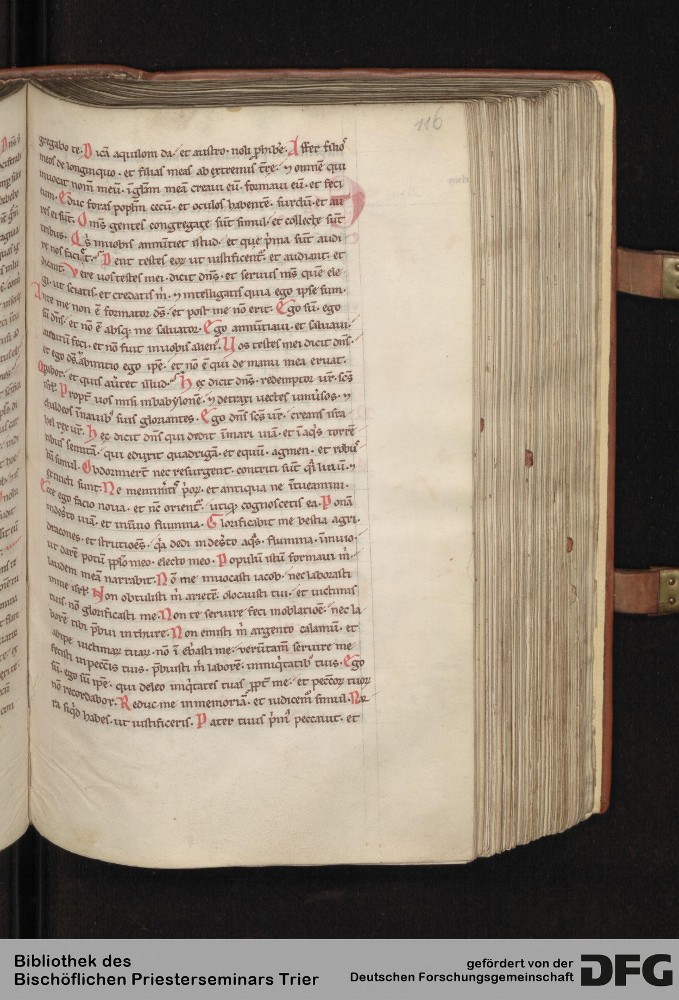 116
gregabo te. Dicā aquiloni da. et austro. noli ꝓhibe. Affer filios
meos de longinquo. et filias meas ab extremis tr̄e. ⁊ omnē qui
inuocat nom̄ meū. in glām meā creaui eū. formaui eū. et feci
eum. Educ foras popl̄m cecū. et oculos habentē. surdū. et au
res ei sūt. Om̄s gentes congregate sūt simul. et collecte sūt
tribus. Q's in uobis annūtiet istud. et que p'ma sūt audi
re nos faciet. Dent testes eoꝝ ut iustificent'. et audiant. et
dicant. Vere uos testes mei dicit dn̄s. et seruus m̄s quē ele
gi. ut sciatis. et credatis m̄. ⁊ intelligatis quia ego ipse sum.
Ante me non ē formatus d̄s. et post me nō erit. Ego sū. ego
sū dn̄s. et nō ē absq; me saluator. Ego annūtiaui. et saluaui.
auditū feci. et nō fuit in uobis alien'. Vos testes mei dicit dn̄s.
et ego d̄s ab initio ego ip̄e. et nō ē qui de manu mea eruat.
Opabor. et quis au'tet illud. Hec dicit dn̄s. redemptor ur̄. sc̄s
isrl̄. Propt' uos misi in babylonē. ⁊ detraxi uectes uniu'sos. ⁊
chaldeos in nauib' suis gloriantes. Ego dn̄s sc̄s ur̄. creans isra
hel rex ur̄. Hec dicit dn̄s qui dedit in mari uiā. et in aq̄s torrē
tibus semitā. qui eduxit quadrigā. et equū. agmen. et robustū
simul. Obdormierūt nec resurgent. contriti sūt q̄i linū. ⁊
extincti sunt. Ne memineritis p'orꝝ. et antiqua ne intueamini.
Ecce ego facio noua. et nc̄ orient'. utiq; cognoscetis ea. Ponā
in des'to uiā. et in inuio flumina. Glorificabit me bestia agri.
dracones. et strutiones. q̄a dedi in des'to aq̄s. flumina in inuio.
ut darē potū pp̄lo meo. electo meo. Populū istū formaui m̄.
laudem meā narrabit. Nō me inuocasti iacob. nec laborasti
in me isrl̄. Non obtulisti m̄ arietē olocausti tui. et uictimis
tuis nō glorificasti me. Non te seruire feci in oblatiōe. nec la
borē tibi p̄bui in thure. Non emisti m̄ argento calamū. et
adipe uictimaꝝ tuaꝝ. nō inebriasti me. uerūtam̄ seruire me
fecisti in peccīs tuis. p̄buisti m̄ laborē. in iniq'tatib' tuis. Ego
sū. ego sū ip̄e. qui deleo iniq'tates tuas ꝓpt' me. et pecc̄oꝝ tuoꝝ
nō recordabor. Reduc me in memoriā. et iudicem' simul. Nar
ra siq'd habes. ut iustificeris. Pater tuus p'm' peccauit. et
Bibliothek des
Bischöflichen Priesterseminars Trier
gefördert von der
Deutschen Forschungsgemeinschaft
DFG